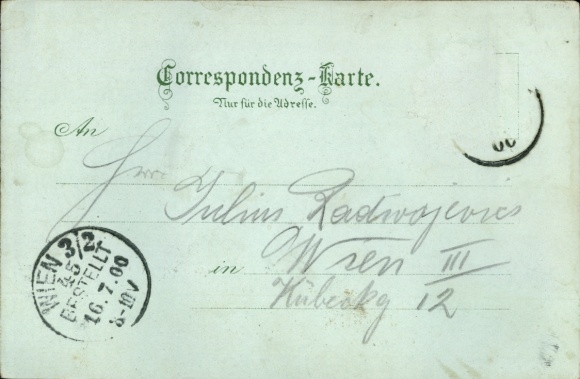 Correspondenz-Karte.
Nur für die Adresse.
An
Herrn
Julius Radivojevics
in Wien III
Kübeckg 12
WIEN 3/2
45
BESTELLT
16.7.00
8-10V
00